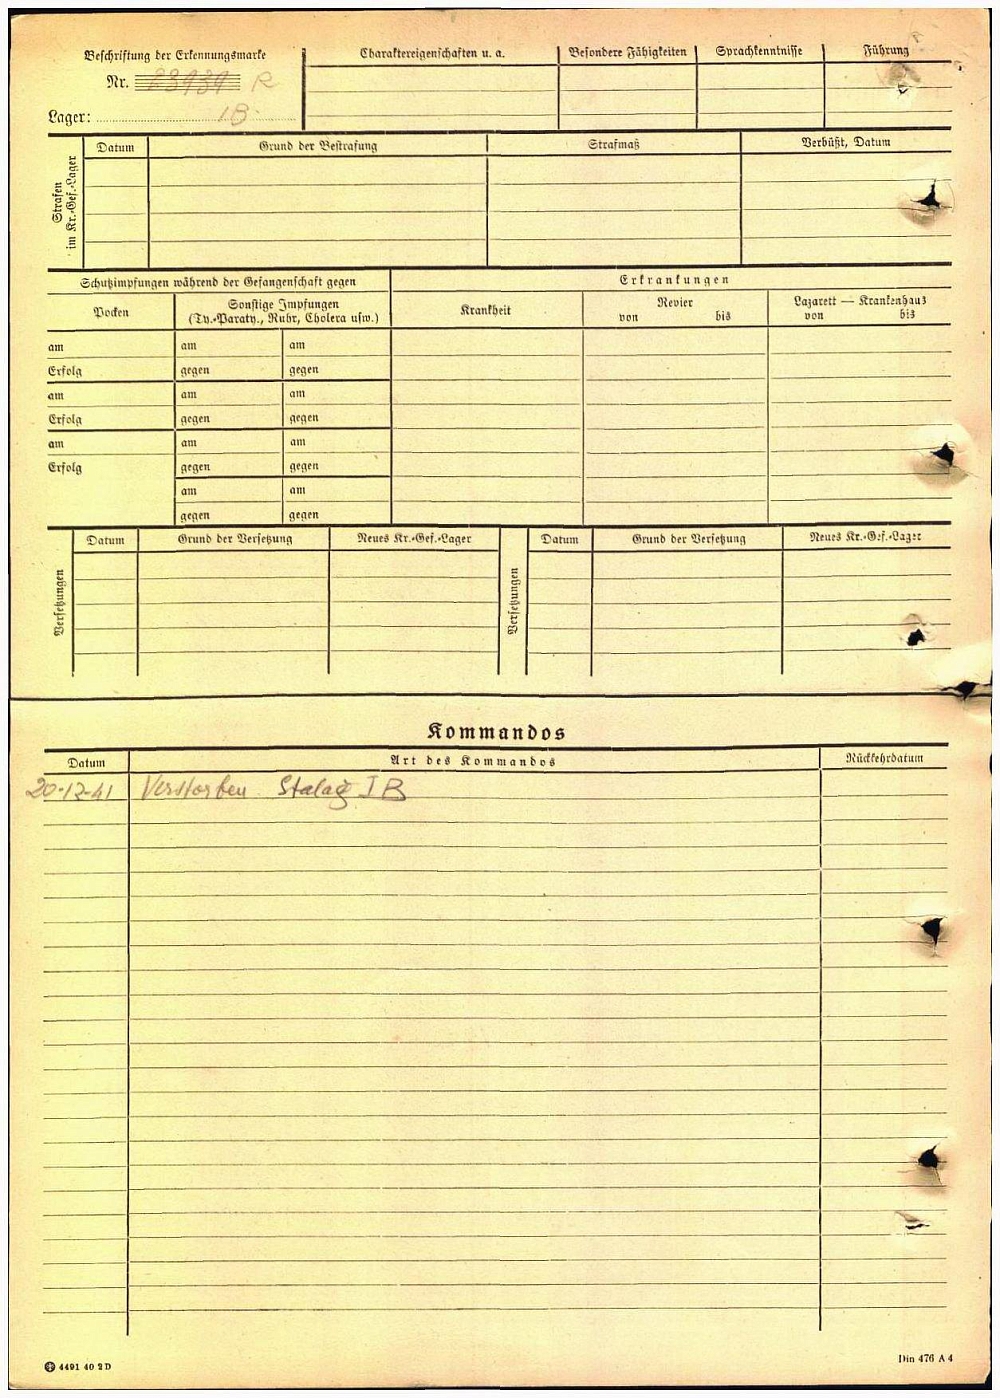 Beschriftung der Erkennungsmarke
Nr. 23939 R
Lager: IB
Charaktereigenschaften u. a.
Besondere Fähigkeiten
Sprachkenntnisse
Führung
Strafen
im Kr.-Gef.-Lager
Datum
Grund der Bestrafung
Strafmaß
Verbüßt, Datum
Schutzimpfungen während der Gefangenschaft gegen
Erkrankungen
Pocken
Sonstige Impfungen
(Ty.-Paraty., Ruhr, Cholera usw.)
Krankheit
Revier
von bis
Lazarett — Krankenhaus
von bis
am am am
Erfolg gegen gegen
am am am
Erfolg gegen gegen
am am am
Erfolg gegen gegen
am am
gegen gegen
Versetzungen
Datum
Grund der Versetzung
Neues Kr.-Gef.-Lager
Versetzungen
Datum
Grund der Versetzung
Neues Kr.-Gef.-Lager
Kommandos
Datum
Art des Kommandos
Rückkehrdatum
20-12-41 Verstorben Stalag I B
4491 40 2 D
Din 476 A 4